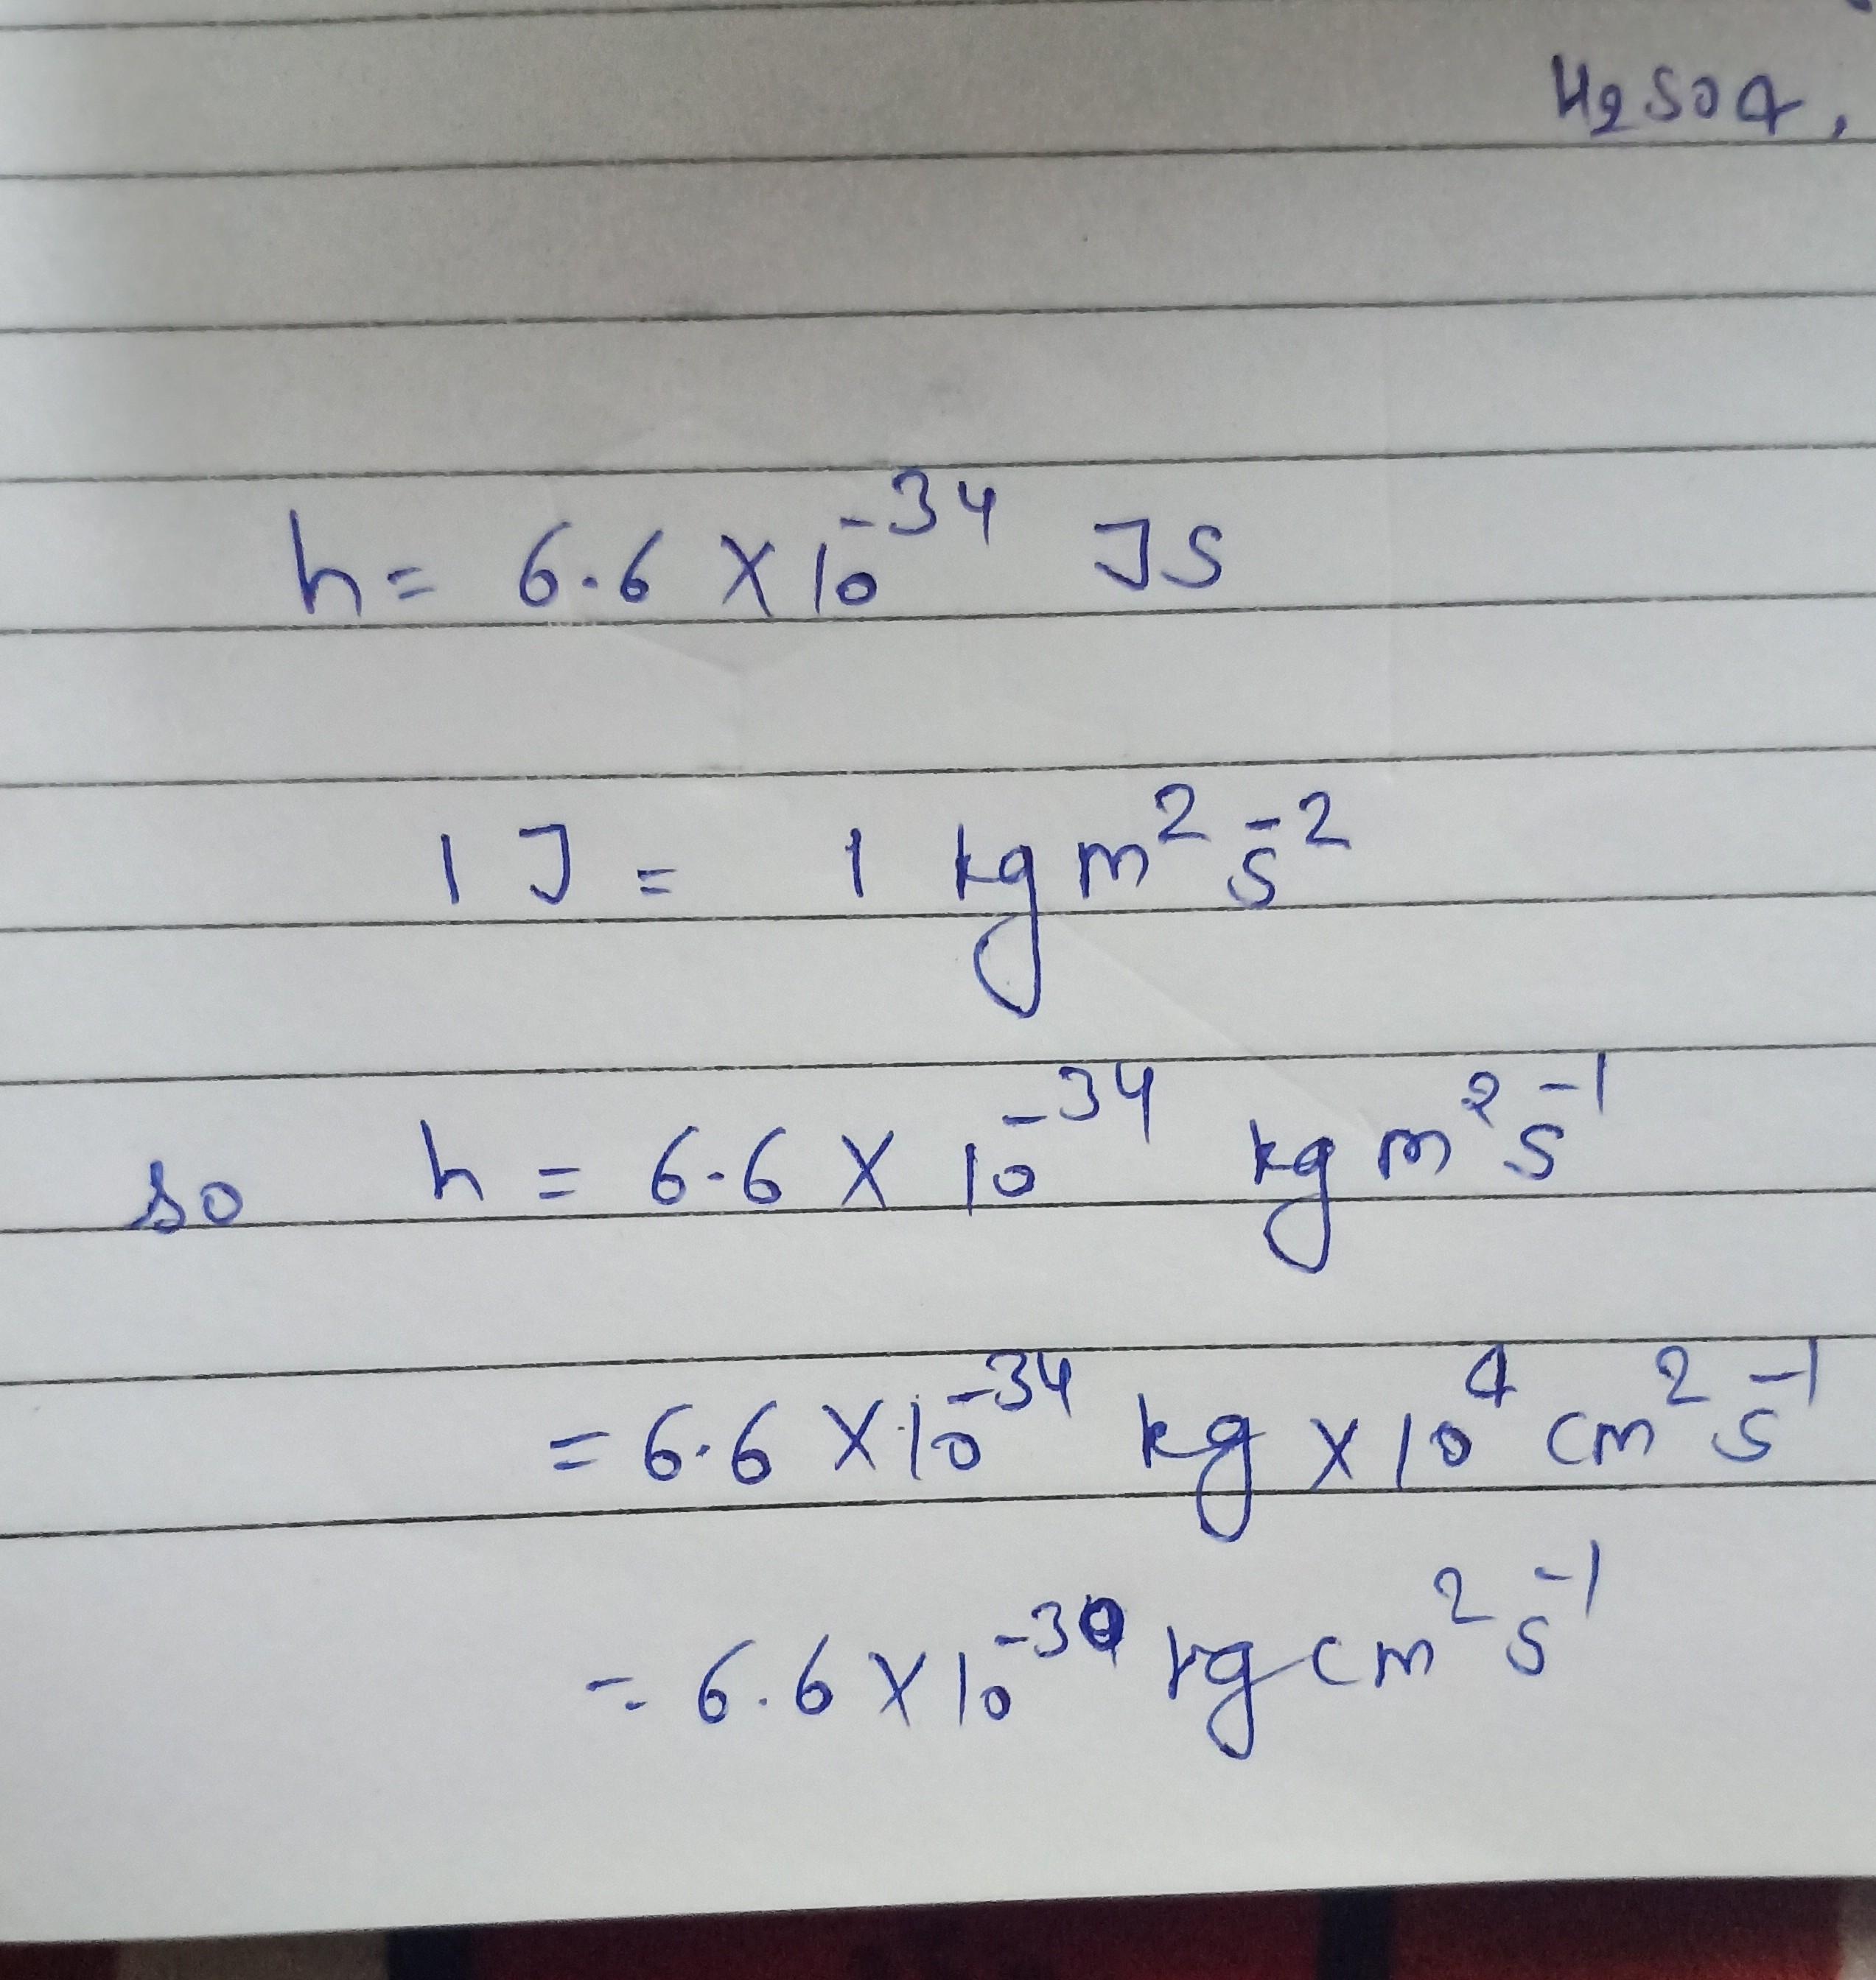 H₂SO4,
h = 6.6 × 10⁻³⁴ JS
1 J = 1 kg m² s⁻²
so h = 6.6 × 10⁻³⁴ kg m² s⁻¹
= 6.6 × 10⁻³⁴ kg × 10⁴ cm² s⁻¹
= 6.6 × 10⁻³⁰ kg cm² s⁻¹